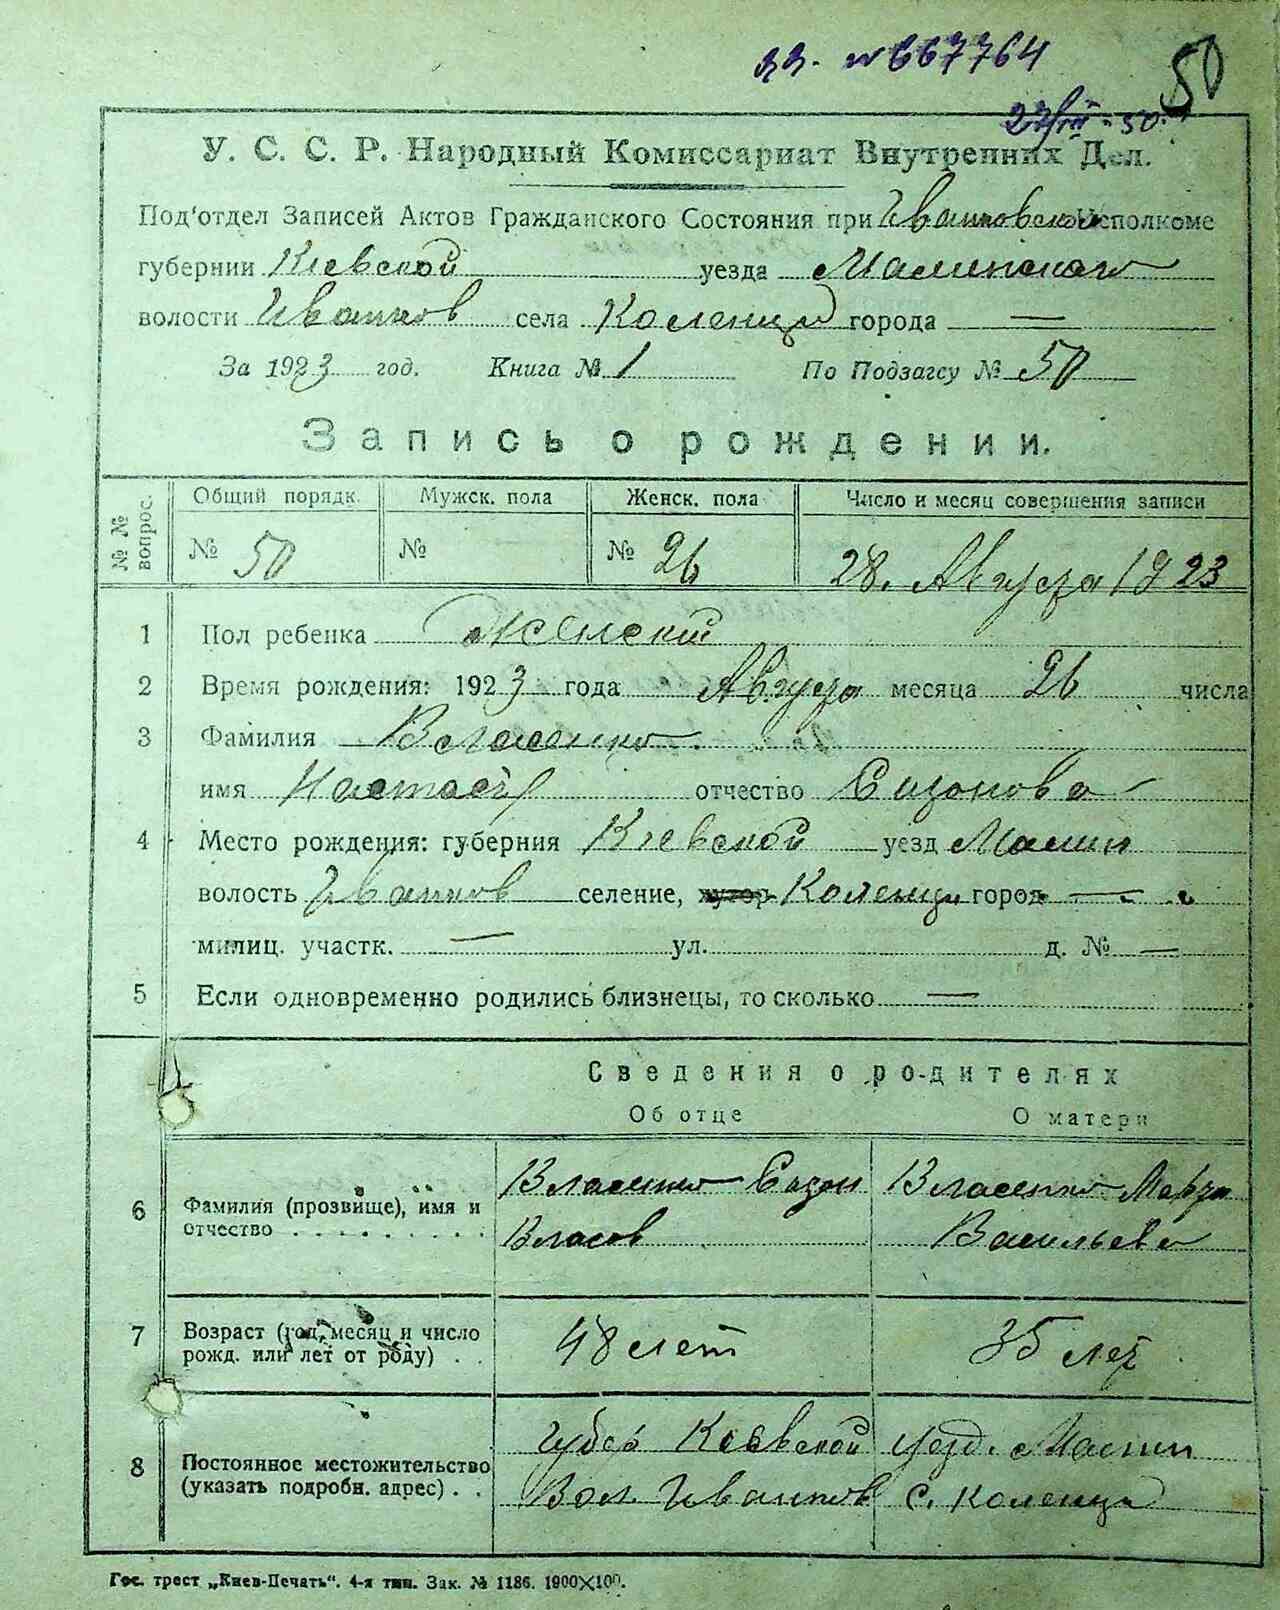 № 667764
50
27/VII - 50.
У. С. С. Р. Народный Комиссариат Внутренних Дел.
Под'отдел Записей Актов Гражданского Состояния при Иванковском Исполкоме
губернии Киевской уезда Малинского
волости Иванков села Коленци города —
За 1923 год. Книга № 1 По Подзагсу № 50
Запись о рождении.
№ № вопрос. Общий порядк. Мужск. пола Женск. пола Число и месяц совершения записи
№ 50 № № 26 28. Августа 1923
1 Пол ребенка Женский
2 Время рождения: 1923 года Августа месяца 26 числа
3 Фамилия Власенко
имя Настасия отчество Сазонова
4 Место рождения: губерния Киевской уезд Малин
волость Иванков селение, хутор Коленци город —
милиц. участк. — ул. д. № —
5 Если одновременно родились близнецы, то сколько —
Сведения о родителях
Об отце О матери
6 Фамилия (прозвище), имя и отчество Власенко Сазон Власов Власенко Марта Васильева
7 Возраст (год, месяц и число рожд. или лет от роду) 48 лет 35 лет
8 Постоянное местожительство (указать подробн. адрес) Киевской уезд. Малин
Вол. Иванков с. Коленци
Гос. трест „Киев-Печать“. 4-я тип. Зак. № 1186. 1900×100.